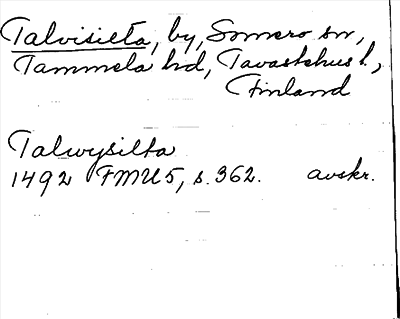 Talvisilta, by, Somero sn,
Tammela hd, Tavastehus l.,
Finland
Talwysilta
1492 FMU 5, s. 362. avskr.